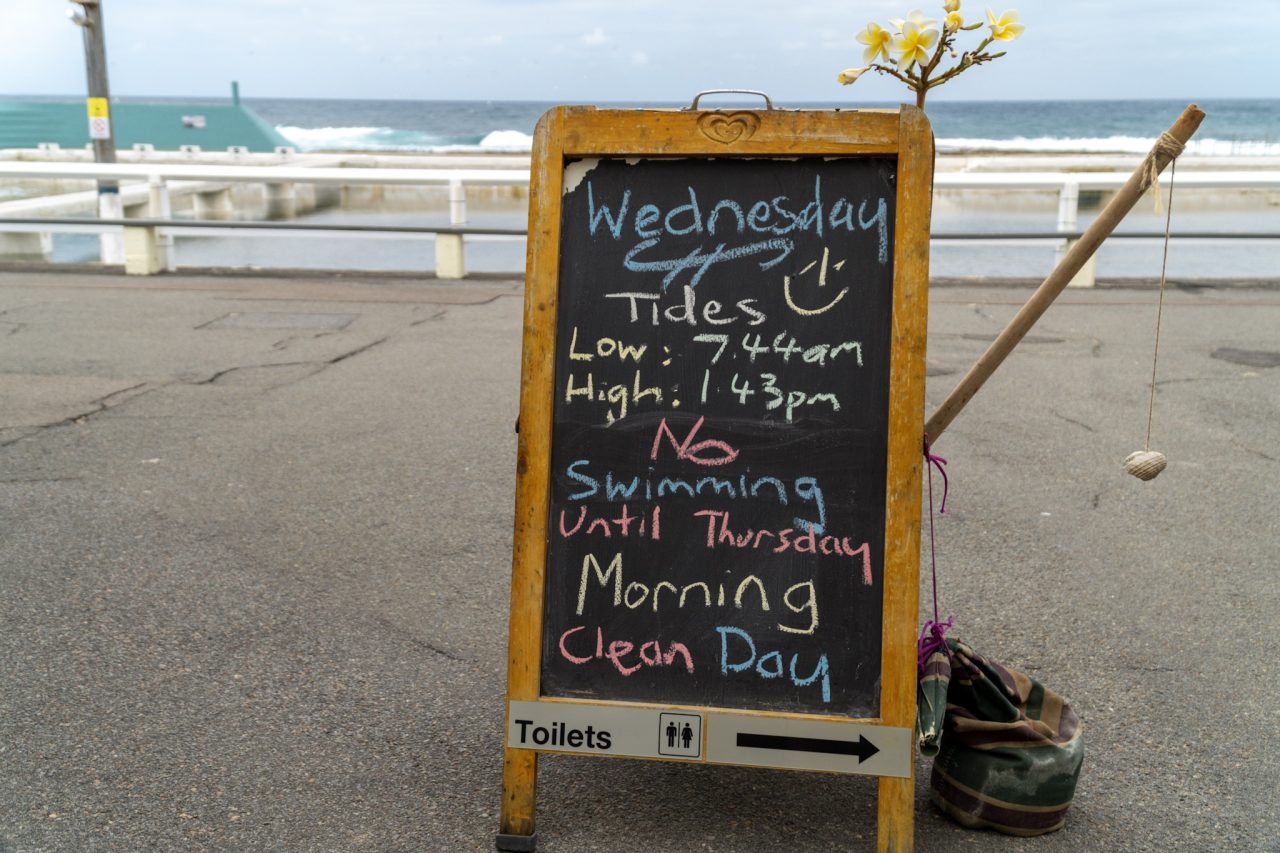 Wednesday
Tides
Low: 7.44am
High: 1.43pm
No
Swimming
Until Thursday
Morning
Clean Day
Toilets